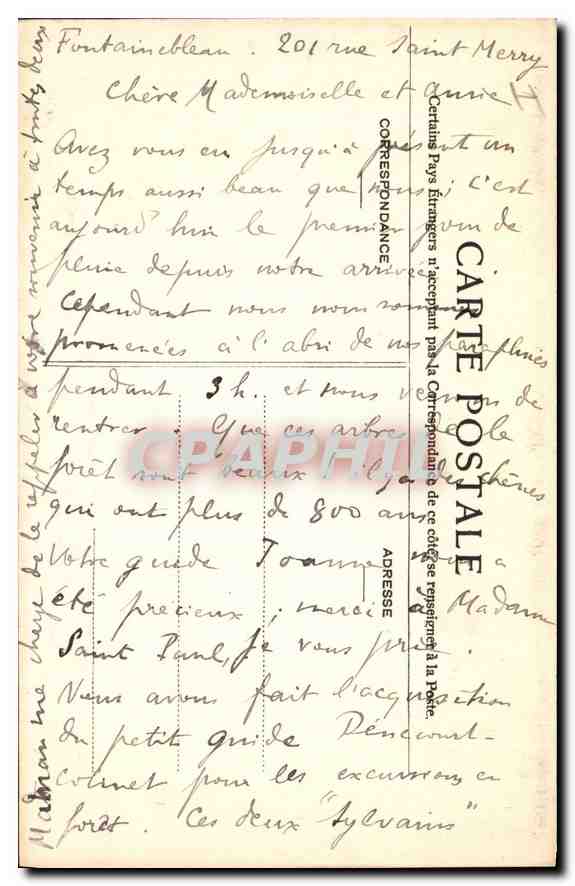 Fontainebleau. 201 rue Saint Merry
Chère Mademoiselle et Amie I
Avez vous eu jusqu'à présent un
temps aussi beau que nous ; C'est
aujourd'hui le premier jour de
pluie depuis notre arrivée.
Cependant nous nous sommes
promenées à l'abri de nos parapluies
pendant 3h. et nous venons de
rentrer. Que ces arbres de la
forêt sont beaux ! il y a des chênes
qui ont plus de 800 ans.
Votre guide Joanne nous a
été précieux ; merci à Madame
Saint Paul, je vous prie.
Nous avons fait l'acquisition
du petit guide Denecourt-
Colinet pour les excursions en
forêt. Ces deux "Sylvains"
Maman me charge de la rappeler à votre souvenir à toutes deux
CARTE POSTALE
Certains Pays Étrangers n'acceptant pas la Correspondance de ce côté, se renseigner à la Poste.
CORRESPONDANCE
ADRESSE
CPAPHIL